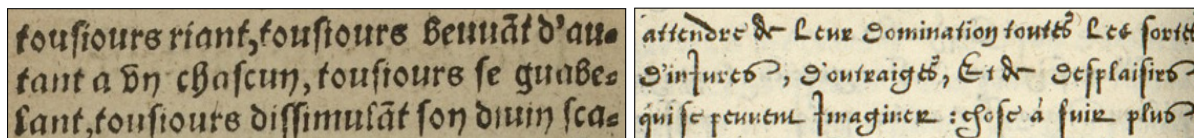 touſiours riant, touſiours beuuãt d'au-
tant a vn chaſcun, touſiours ſe guabe-
lant, touſiours diſſimulãt ſon diuin ſca-
attendre de Leur Domination toutes Les sortes
D'inJures, D'outraiges, Et de Desplaisirs
qui se peuuent Imaginer : chose à fuir plus